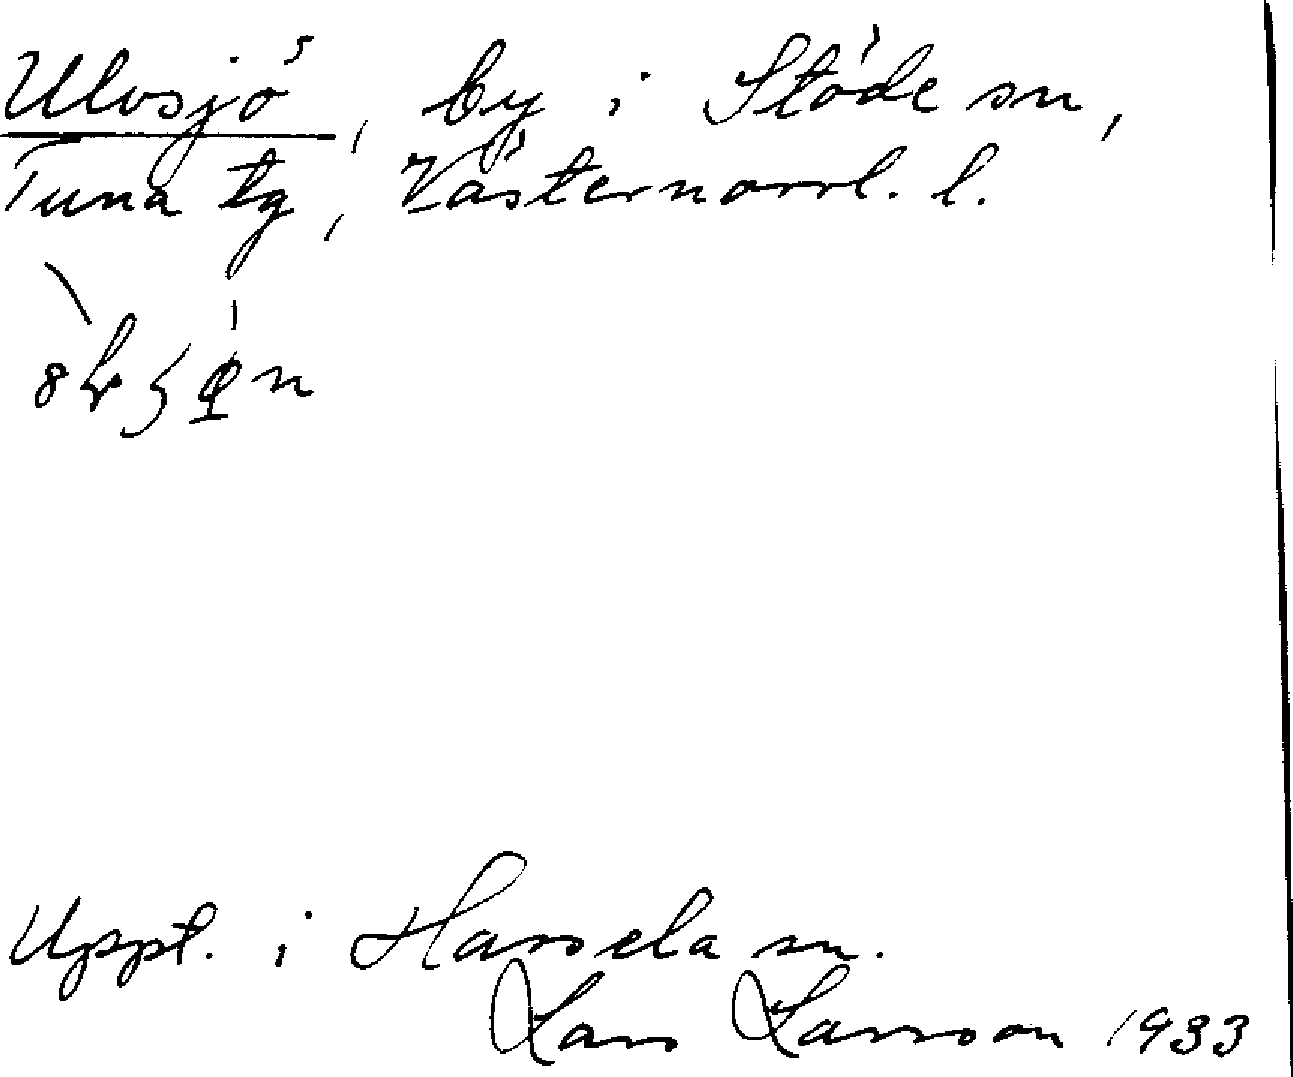 Ulvsjö, by i Stöde sn,
Tuna tg, Västernorrl. l.
Uppt. i Hassela sn.
Lars Larsson 1933